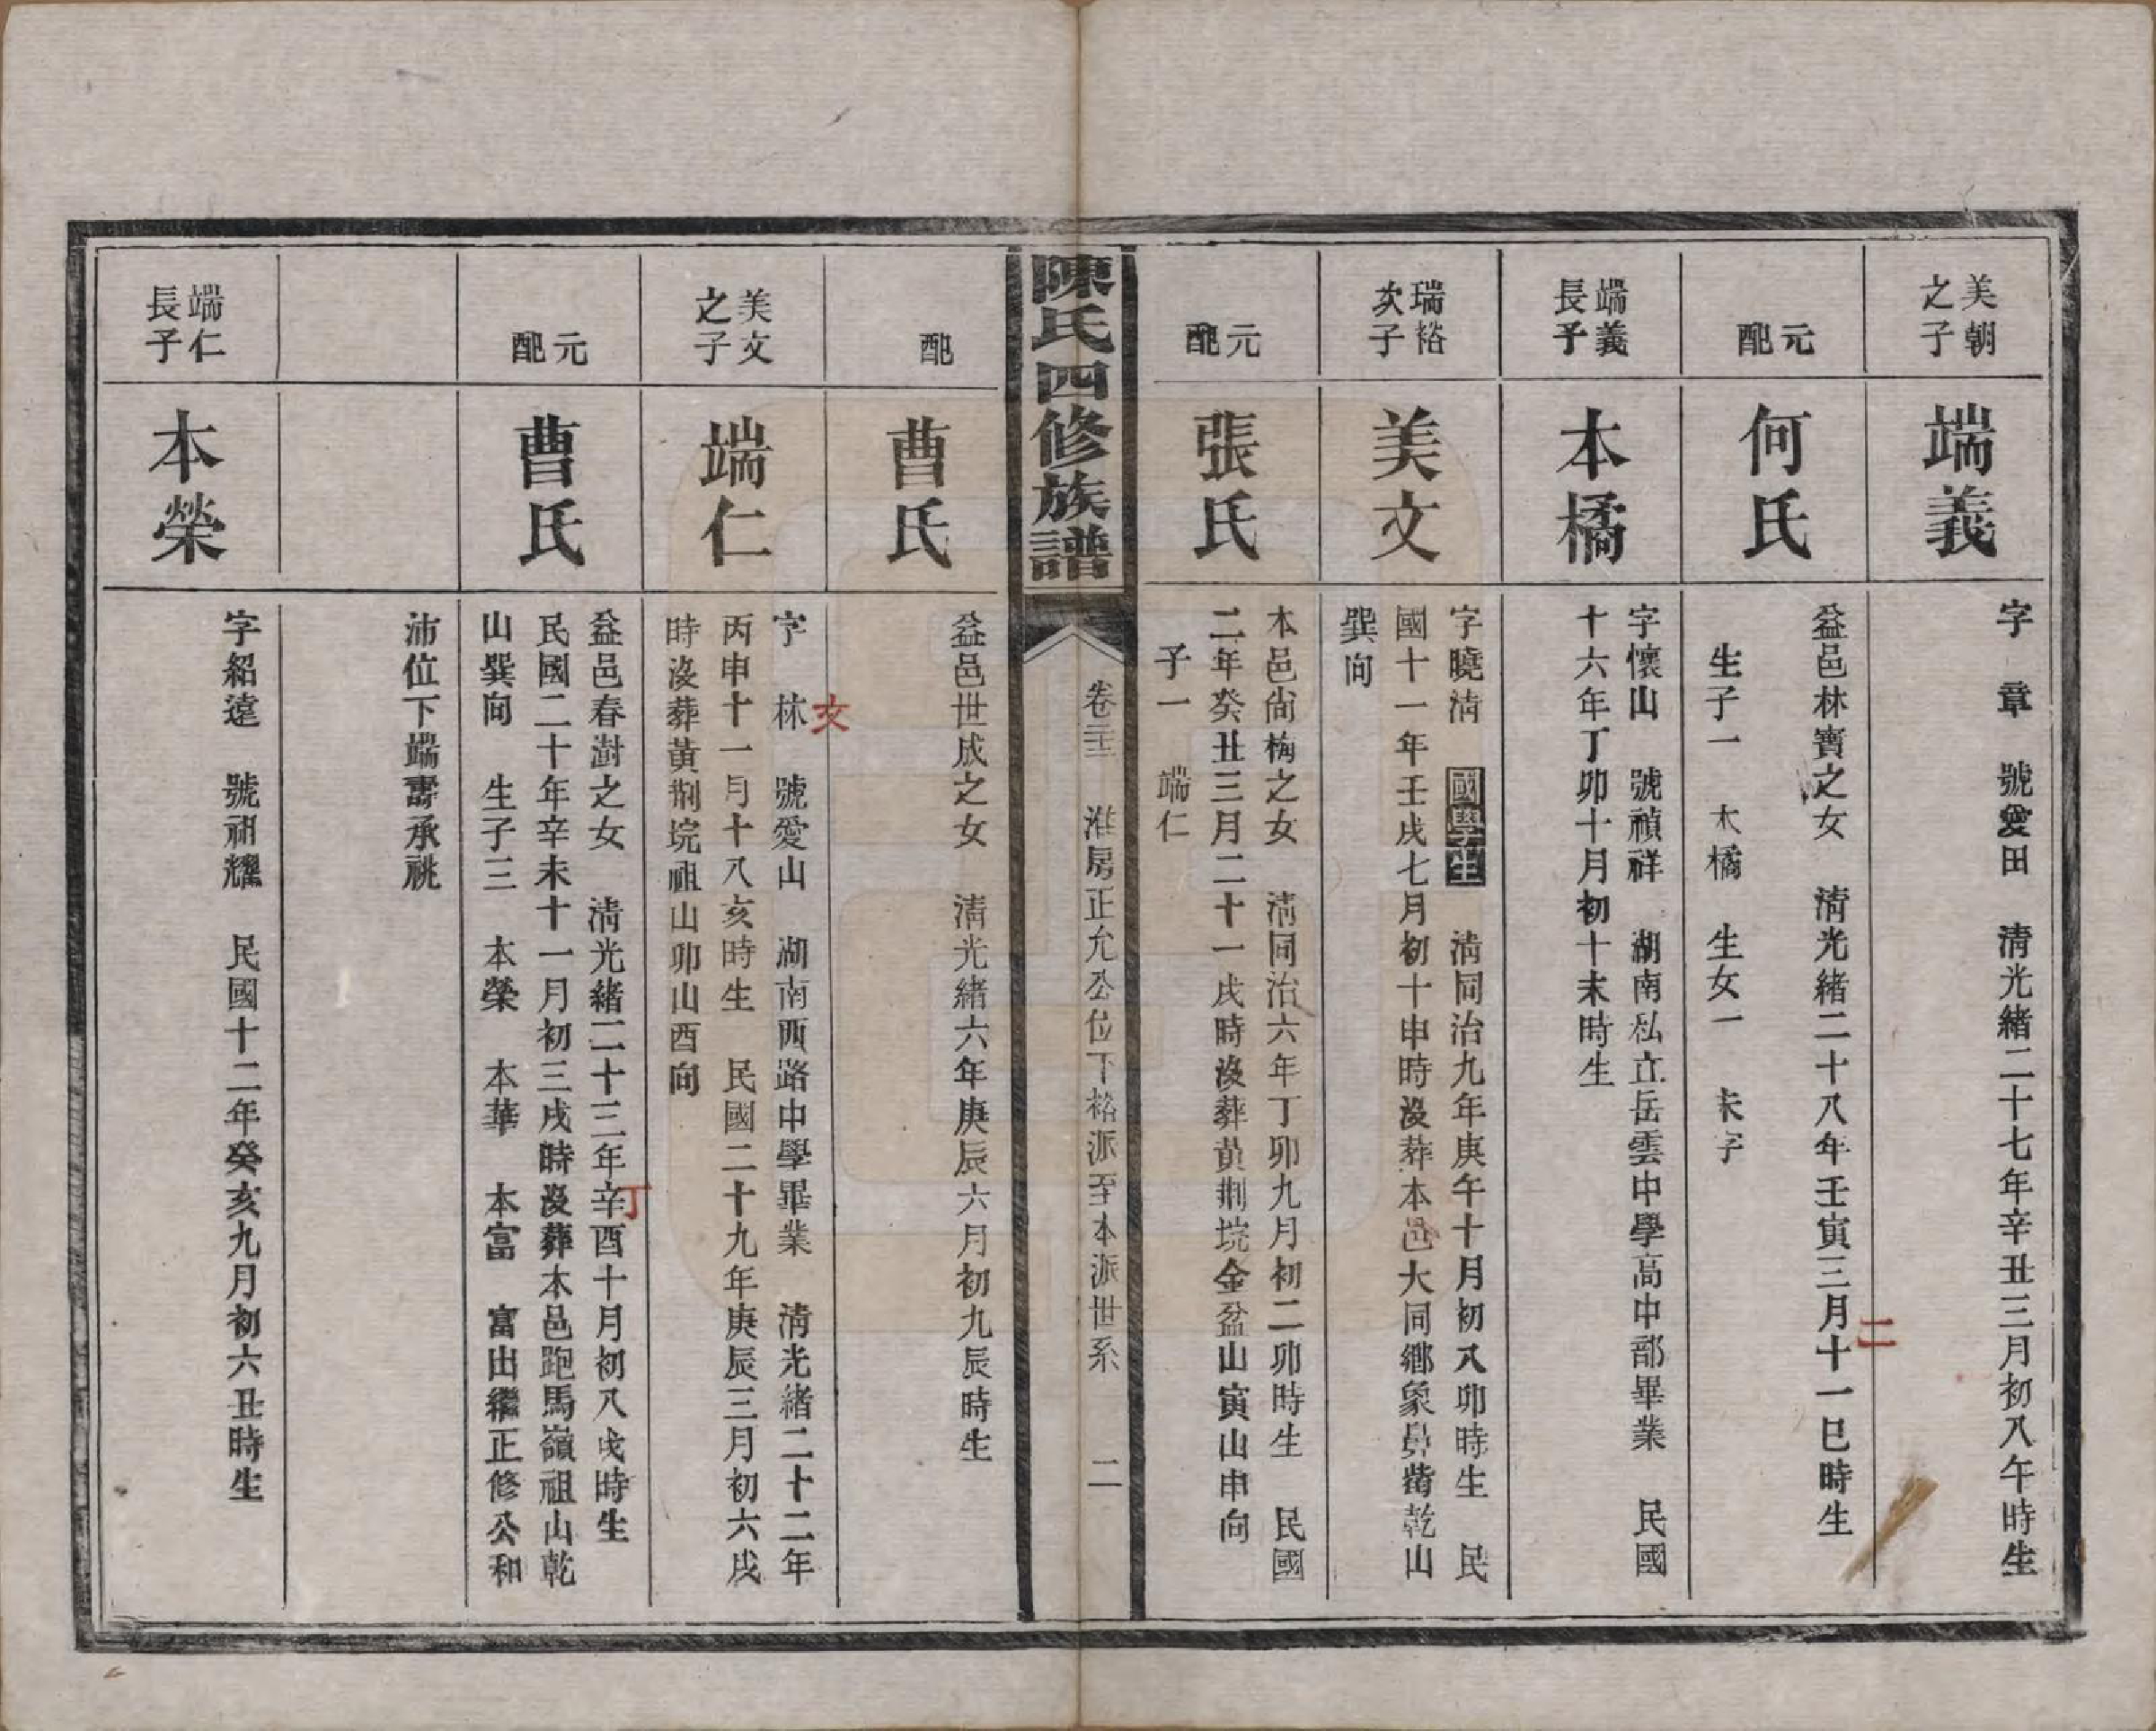 美朝
之子
端義
字　章　號愛田　清光緒二十七年辛丑三月初八午時生
元
配
何氏
益邑林寶之女　清光緒二十八年壬寅三月十一巳時生
二
生子一　本橘　生女一　未字
端義
長子
本橘
字懷山　號禎祥　湖南私立岳雲中學高中部畢業　民國
十六年丁卯十月初十未時生
瑞裕
次子
美文
字曉清　國學生　清同治九年庚午十月初八卯時生　民
國十一年壬戌七月初十申時沒葬本邑大同鄉象鼻嘴乾山
巽向
元
配
張氏
本邑尙梅之女　清同治六年丁卯九月初二卯時生　民國
二年癸丑三月二十一戌時沒葬黃荆垸金盆山寅山申向
子一　端仁
陳氏四修族譜
卷三　淮房正允公位下裕派至本派世系　二
配
曹氏
益邑世成之女　清光緒六年庚辰六月初九辰時生
美文
之子
端仁
字　林　號愛山　湖南西路中學畢業　清光緒二十二年
文
丙申十一月十八亥時生　民國二十九年庚辰三月初六戌
時沒葬黃荆垸祖山卯山酉向
元
配
曹氏
益邑春澍之女　清光緒二十三年辛酉十月初八戌時生
丁
民國二十年辛未十一月初三戌時沒葬本邑跑馬嶺祖山乾
山巽向　生子三　本榮　本華　本富　富出繼正修公和
沛位下端壽承祧
端仁
長子
本榮
字紹遠　號祖耀　民國十二年癸亥九月初六丑時生